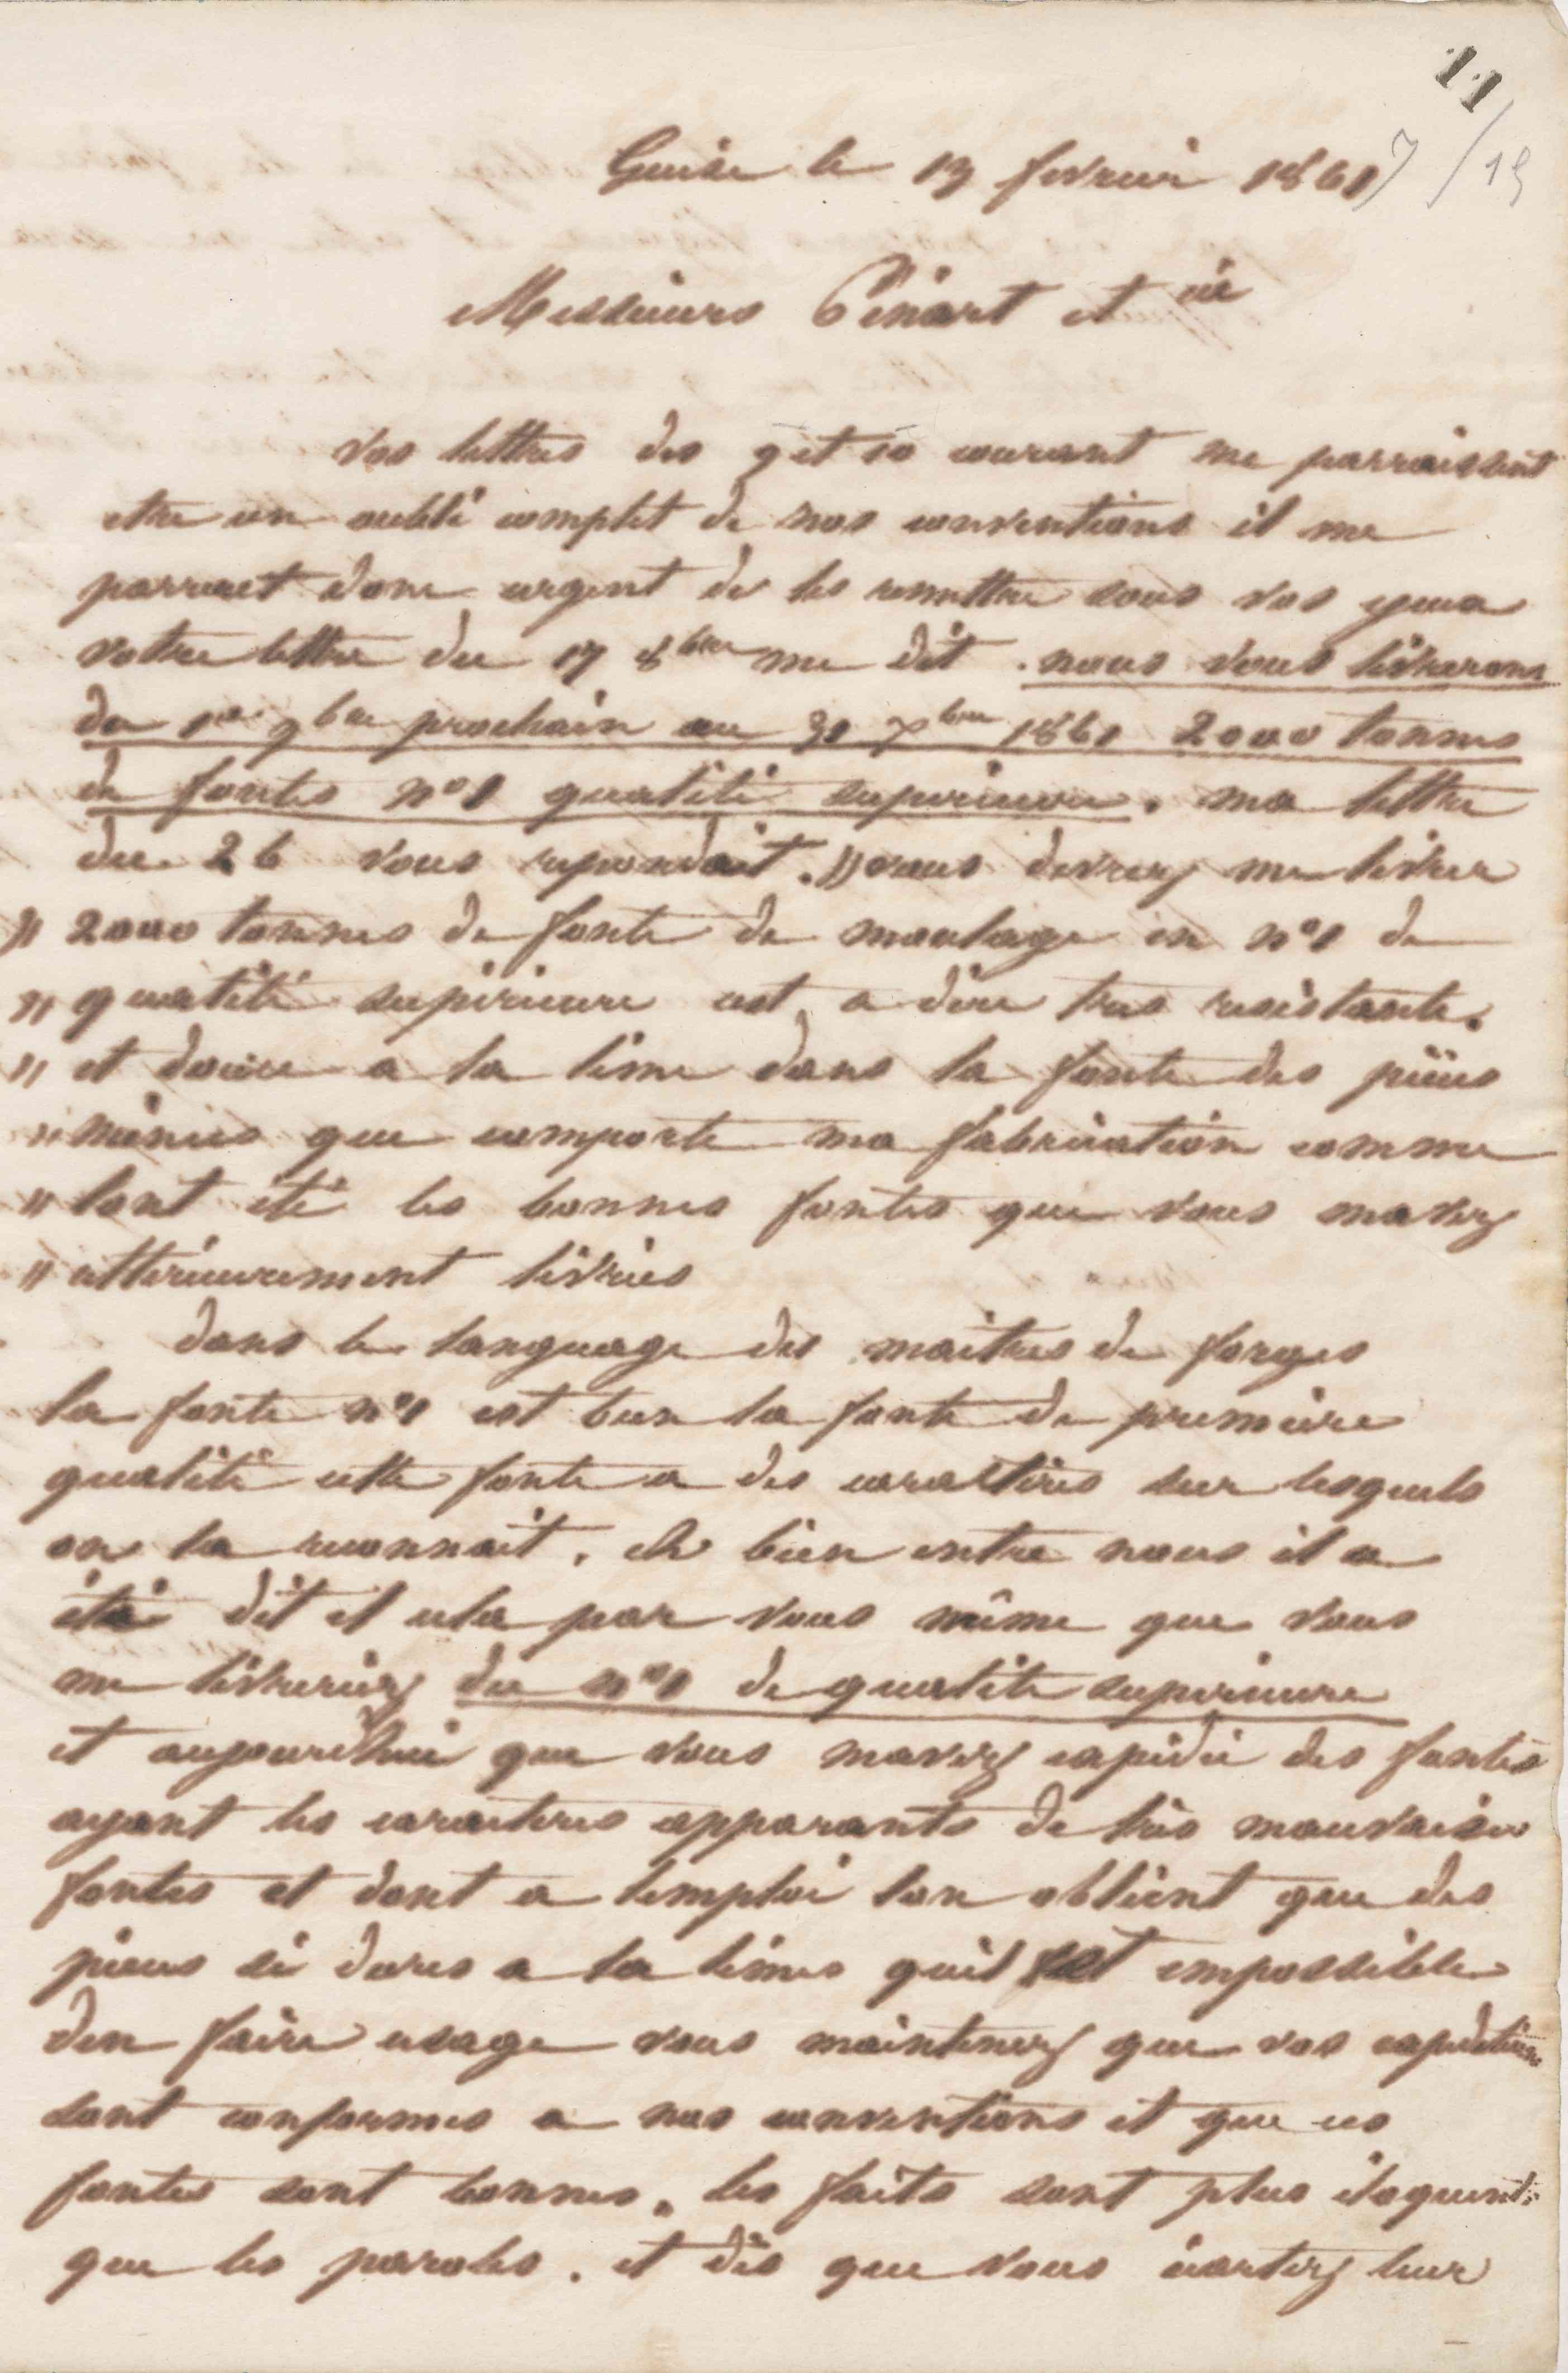 11
7/15
Guise le 13 fevrier 1861
Messieurs Pinart et cie
Vos lettres des 9 et 10 courant me parraissent
etre un oubli complet de nos conventions il me
parraet donc urgent de les remettre sous vos yeux
votre lettre du 17 8bre me dit . nous vous livrerons
du 1er 9bre prochain au 31 Xbre 1861 2000 tonnes
de fontes n°1 qualité superieure. ma lettre
du 26 vous repondait. )) vous devrez me livrer
)) 2000 tonnes de fonte de moulage en n°1 de
)) qualité supérieure cest a dire tres resistante.
)) et douce a la lime dans la fonte des pièces
)) minces que comporte ma fabrication comme
)) lont été les bonnes fontes que vous mavez
)) ulterieurement livrées
dans le language des maitres de forges
la fonte n°1 est bien la fonte de premiere
qualité cette fonte a des caractères sur lesquels
on la reconnait. eh bien entre nous il a
été dit et cela par vous même que vous
me livreriez du n°1 de qualite superieure
et aujourdhui que vous mavez expédié des fontes
ayant les caracteres apparants de très mauvaises
fontes et dont a lemploi lon obtient que des
pieces si dures a la limes quil est impossible
den faire usage vous maintenez que vos expéditions
sont conformes a nos conventions et que ces
fontes sont bonnes. les faits sont plus éloquents
que les paroles. et dès que vous écartez leur